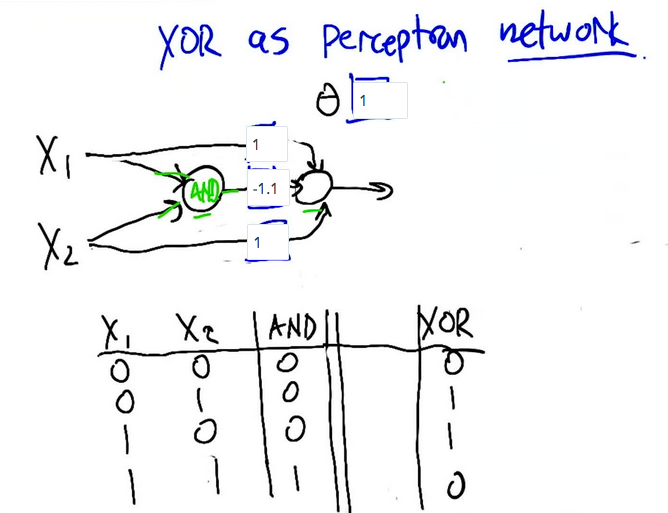 XOR as perceptron network.
θ 1
X1 1
AND -1.1
X2 1
X1 X2 AND XOR
0 0 0 0
0 1 0 1
1 0 0 1
1 1 1 0